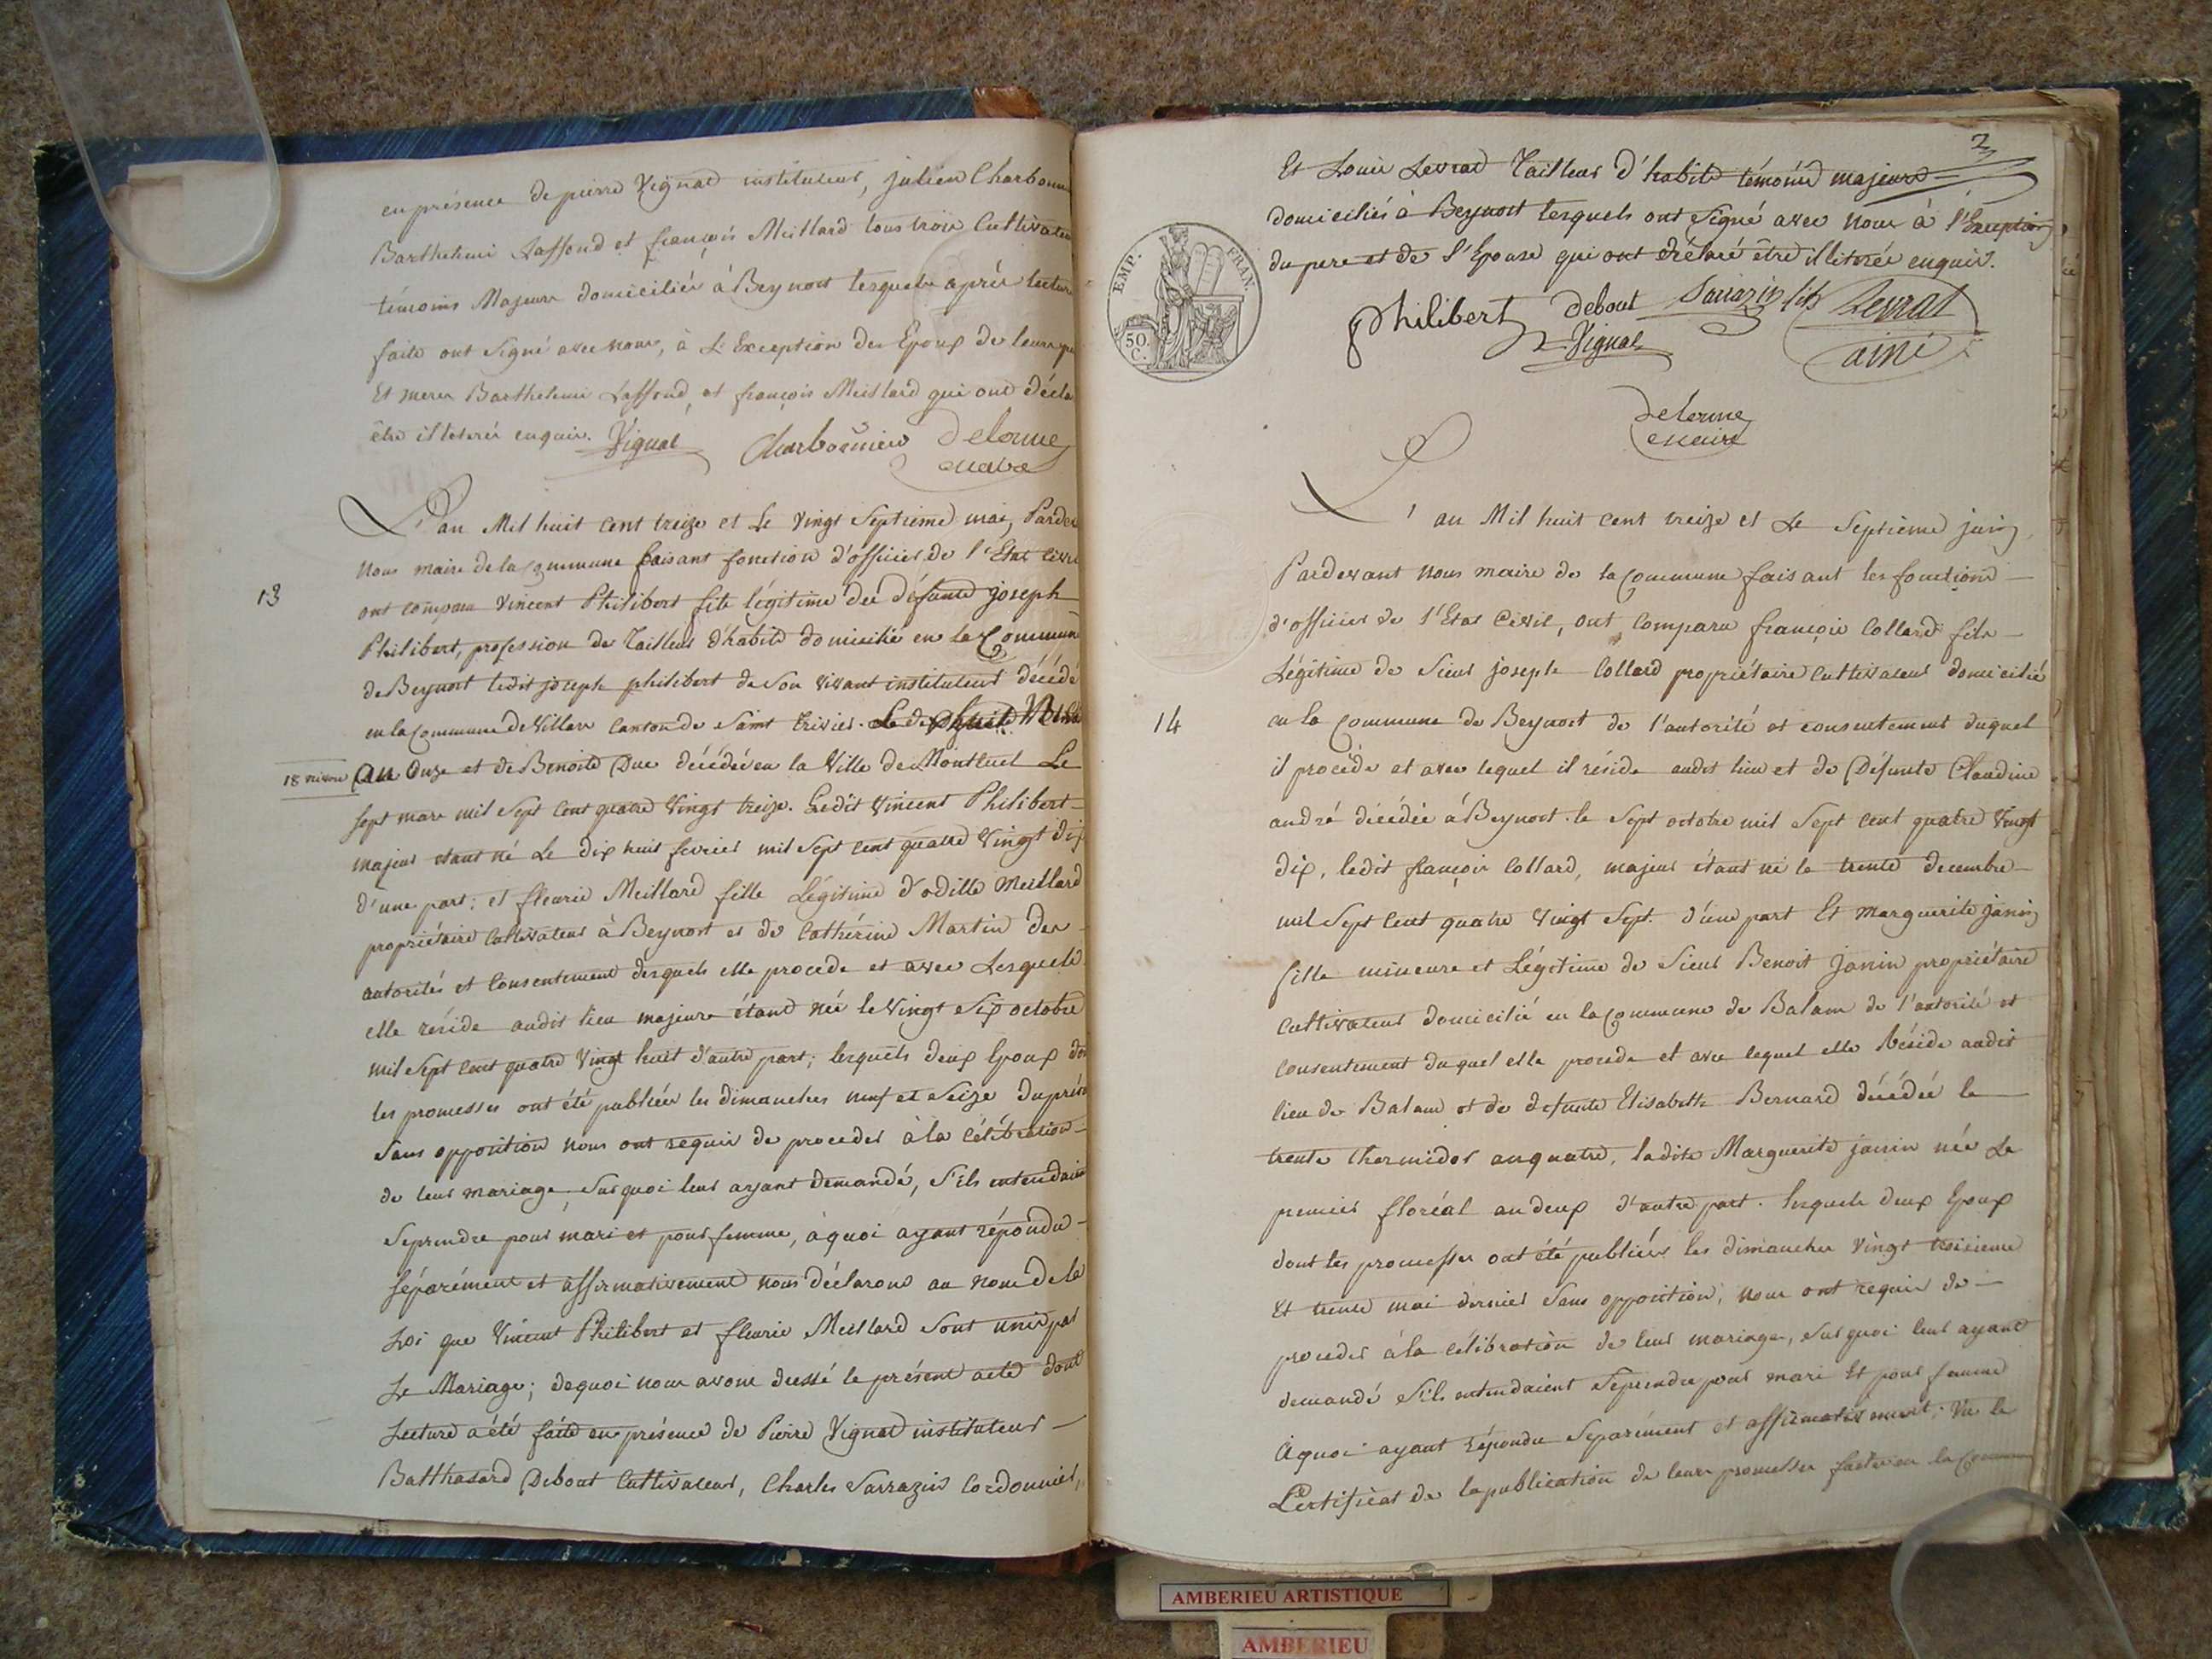 en présence de pierre Vignat instituteur, julien Charbonn
Barthelemi Laffond et françois Meillard tous trois Cultivateu
témoins Majeurs domiciliés à Beynost lesquels après lecture
faite ont Signé avec nous, à L'Exception des Epoux de leurs
Et meres Barthelemi Laffond, et françois Meillard qui ont décla
être illiterés enquis. Vignat Charbonnier Delorme
maire
13
L'an Mil huit cent treize et Le Vingt Septieme mai, Parde
Nous maire de la Commune faisant fonction d'officier de l'Etat civil
ont comparu Vincent Philibert fils légitime de défunts joseph
Philibert, profession de Tailleur d'habits domicilié en la Commune
de Beynost ledit joseph philibert de Son Vivant instituteur décédé
en la Commune de Villars canton de Saint trivier. Le
18 nivose
an Onze et de Benoite Duc décédée en la Ville de Montluel Le
Sept mars mil Sept Cent quatre Vingt treize. Ledit Vincent Philibert
majeur étant né Le dix huit fevrier mil Sept cent quatre Vingt dix
d'une part; et fleurie Meillard fille Légitime d'odille Meillard
propriétaire Cultivateur à Beynost et de Cathérine Martin des
autorités et Consentement desquels elle procede et avec Lesquels
elle réside audit lieu majeure étant née le Vingt Six octobre
mil Sept Cent quatre Vingt huit d'autre part; lesquels deux Epoux don
les promesses ont été publiées les dimanches neuf et Seize du prése
Sans opposition nous ont requis de proceder à la célébration
de leur mariage, Sur quoi leur ayant demandé, S'ils entendaient
Seprendre pour mari et pour femme, à quoi ayant répondu
Séparément et affirmativement nous déclarons au nom de la
Loi que Vincent Philibert et fleurie Meillard Sont unis par
Le Mariage; dequoi nous avons dressé le présent acte dont
Lecture a été faite en présence de Pierre Vignat instituteur
Balthasard Debout Cultivateur, Charles Sarrazin Cordonnier,
Et Louis Levrat Tailleur d'habits témoins majeurs
domiciliés à Beynost lesquels ont Signé avec nous à l'Exception
du pere et de l'Epouse qui ont déclaré être illiterés enquis.
EMP. FRAN.
50. C.
Philibert debout Sarrazin fils Levrat
Vignat ainé
Delorme
maire
14
L'an Mil huit cent treize et Le Septième juin,
Pardevant Nous maire de la Commune faisant les fonctions
d'officier de l'Etat Civil, ont Comparu françois Collard fils
Légitime de Sieur joseph Collard propriétaire Cultivateur domicilié
en la Commune de Beynost de l'autorité et consentement duquel
il procède et avec lequel il réside audit lieu et de Défunte Claudine
andré décédée à Beynost le Sept octobre mil Sept cent quatre Vingt
dix, ledit françois Collard, majeur étant né le trente decembre
mil Sept cent quatre Vingt Sept. d'une part Et Marguerite janin
fille mineure et Légitime de Sieur Benoit Janin propriétaire
Cultivateur domicilié en la Commune de Balan de l'autorité et
consentement duquel elle procede et avec lequel elle Réside audit
lieu de Balan et de defunte Elisabeth Bernard décédée le
trente thermidor an quatre, ladite Marguerite janin née Le
premier floréal an deux d'autre part. lesquels deux Epoux
dont les promesses ont été publiées les dimanches Vingt troisieme
Et trente mai dernier Sans opposition, nous ont requis de
proceder à la célébration de leur mariage, Sur quoi leur ayant
demandé S'ils entendaient Seprendre pour mari Et pour femme
A quoi ayant répondu Séparément et affirmativement; Vu le
Certificat de la publication de leurs promesses faite en la Commune
AMBERIEU ARTISTIQUE
AMBERIEU